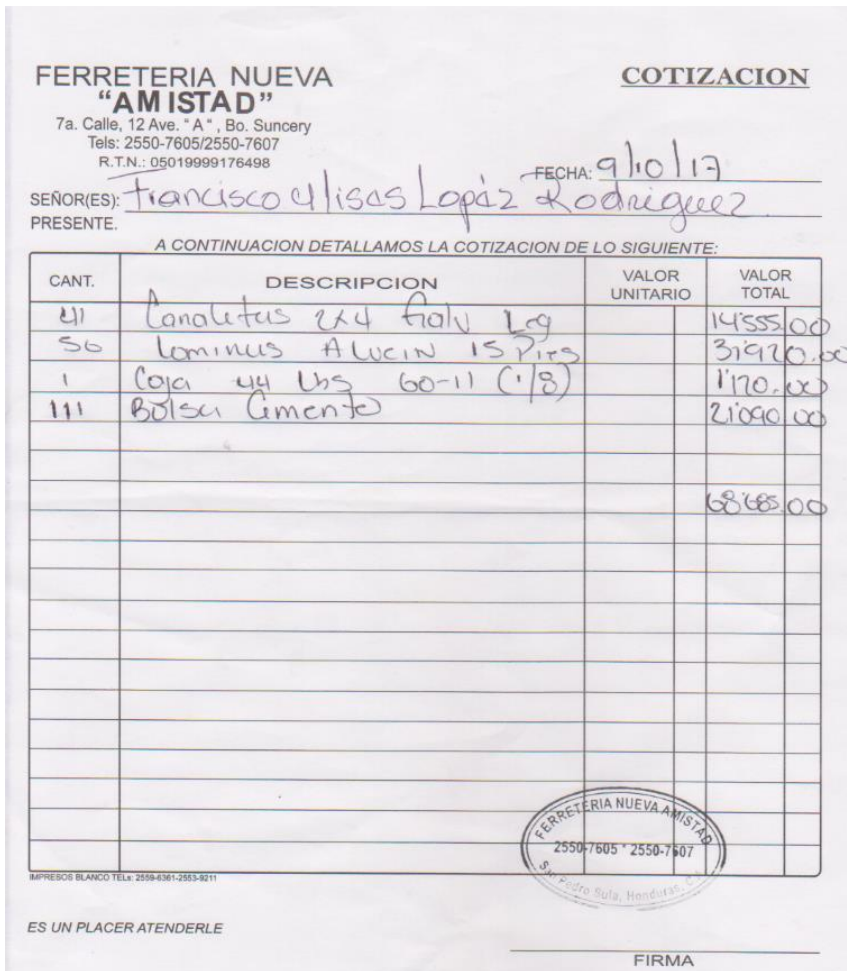 FERRETERIA NUEVA
"AMISTAD"
7a. Calle, 12 Ave. "A", Bo. Suncery
Tels: 2550-7605/2550-7607
R.T.N.: 05019999176498
COTIZACION
FECHA: 9/10/17
SEÑOR(ES): Francisco Ulisas Lopéz Rodriguez
PRESENTE.
A CONTINUACION DETALLAMOS LA COTIZACION DE LO SIGUIENTE:
CANT. DESCRIPCION VALOR UNITARIO VALOR TOTAL
41 Canaletas 2x4 Galv Leg 14'555.00
56 Laminas ALUCIN 15 Pies 31'920.00
1 Caja 44 Lbs 60-11 (1/8) 1'120.00
111 Bolsa Cemento 21'090.00
68'685.00
FERRETERIA NUEVA AMISTAD
2550-7605 * 2550-7607
San Pedro Sula, Honduras, C.A.
IMPRESOS BLANCO TELs: 2559-6361-2553-9211
ES UN PLACER ATENDERLE
FIRMA